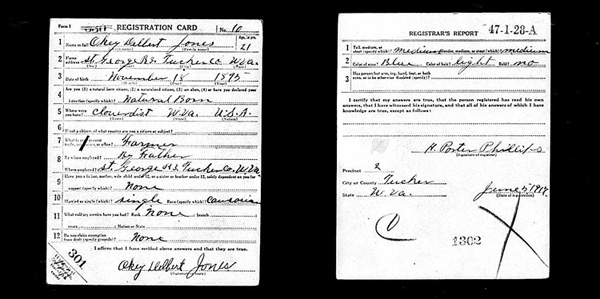 Form 1
REGISTRATION CARD
No. 10
1 Name in full Okey Delbert Jones
Age, in yrs. 21
2 Home address St. George R.2. Tucker Co. W.Va.
3 Date of birth November 18 1895
4 Are you (1) a natural born citizen, (2) a naturalized citizen, (3) an alien, (4) or have you declared your
intention (specify which)? Natural Born
5 Where were you born? W.Va. U.S.A.
6 If not a citizen, of what country are you a citizen or subject?
7 What is your present trade, occupation, or office? Farmer
8 By whom employed? By Father
Where employed? St. George R.2. Tucker Co. W.Va.
9 Have you a father, mother, wife, child under 12, or a sister or brother under 12, solely dependent on you for
support (specify which)? None
10 Married or single (which)? Single Race (specify which)?
11 What military service have you had? Rank None branch
years Nation or State
12 Do you claim exemption from draft (specify grounds)? None
I affirm that I have verified above answers and that they are true.
Okey Delbert Jones
301
REGISTRAR'S REPORT
47-1-28-A
1 Tall, medium, or short (specify which)? Medium Slender, medium, or stout (which)? medium
2 Color of eyes? Blue Color of hair? light Bald? No
3 Has person lost arm, leg, hand, foot, or both
eyes, or is he otherwise disabled (specify)?
I certify that my answers are true, that the person registered has read his own
answers, that I have witnessed his signature, and that all of his answers of which I have
knowledge are true, except as follows:
H. Porter Phillips
(Signature of registrar)
Precinct 2
City or County Tucker
State W.Va.
June 5, 1917
(Date of registration)
C
1302
X